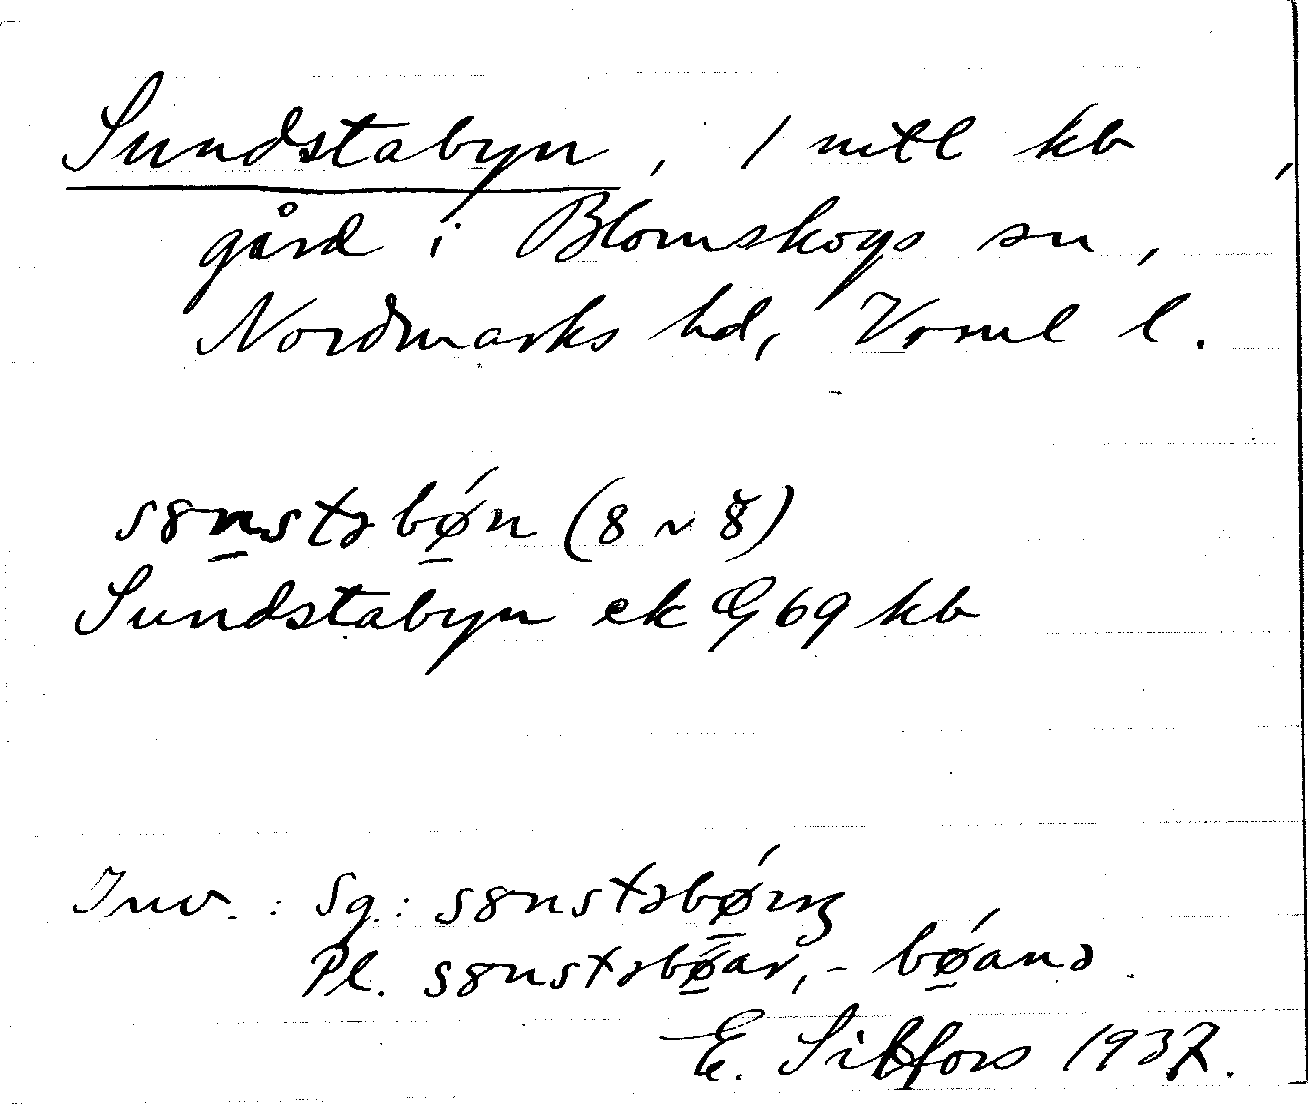 Sundstabyn, 1 mtl kb,
gård i Blomskogs sn,
Nordmarks hd, Vrml l.
s8nstəbǿn (8 ~ 8̆)
Sundstabyn ek G 69 kb
Inv.: Sg.: s8nstəbǿiŋ
Pl. s8nstəbǿar, -bǿanə.
E. Sibfors 1937.